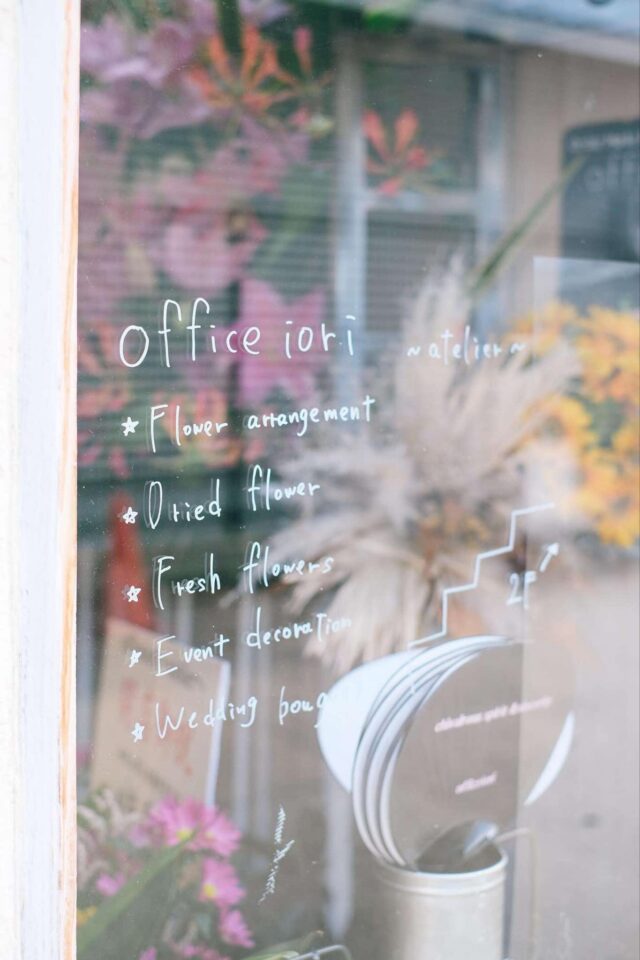 office iori ~atelier~
☆ Flower arrangement
☆ Dried flower
☆ Fresh flowers
☆ Event decoration
☆ Wedding
2F